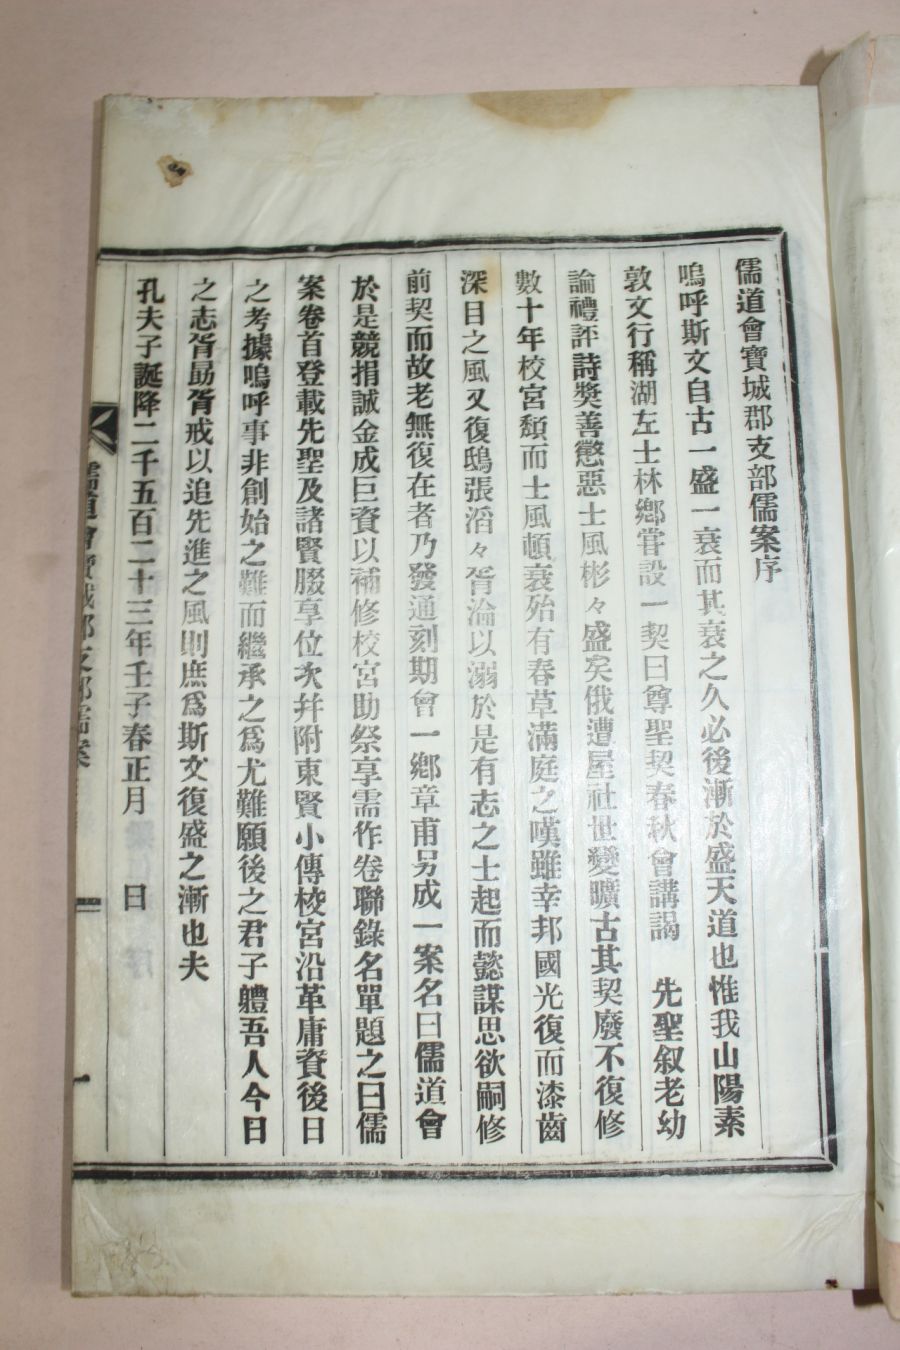 儒道會寶城郡支部儒案序
嗚呼斯文自古一盛一衰而其衰之久必後漸於盛天道也惟我山陽素
敦文行稱湖左士林鄉甞設一契曰尊聖契春秋會講謁 先聖叙老幼
論禮評詩獎善懲惡士風彬々盛矣俄遭屋社世變曠古其契廢不復修
數十年校宮頹而士風頓衰殆有春草滿庭之嘆雖幸邦國光復而漆齒
深目之風又復鴟張滔々胥淪以溺於是有志之士起而懿謀思欲嗣修
前契而故老無復在者乃發通刻期會一鄉章甫另成一案名曰儒道會
於是競捐誠金成巨資以補修校宮助祭享需作卷聯錄名單題之曰儒
案卷首登載先聖及諸賢腏享位次幷附東賢小傳校宮沿革庸資後日
之考據嗚呼事非創始之難而繼承之爲尤難願後之君子軆吾人今日
之志胥勗胥戒以追先進之風則庶爲斯文復盛之漸也夫
孔夫子誕降二千五百二十三年壬子春正月 日
儒道會寶城郡支部儒案
一